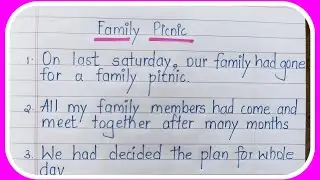 Family Picnic
1. On last saturday, our family had gone
for a family pitnic.
2. All my family members had come and
meet together after many months
3. We had decided the plan for whole
day